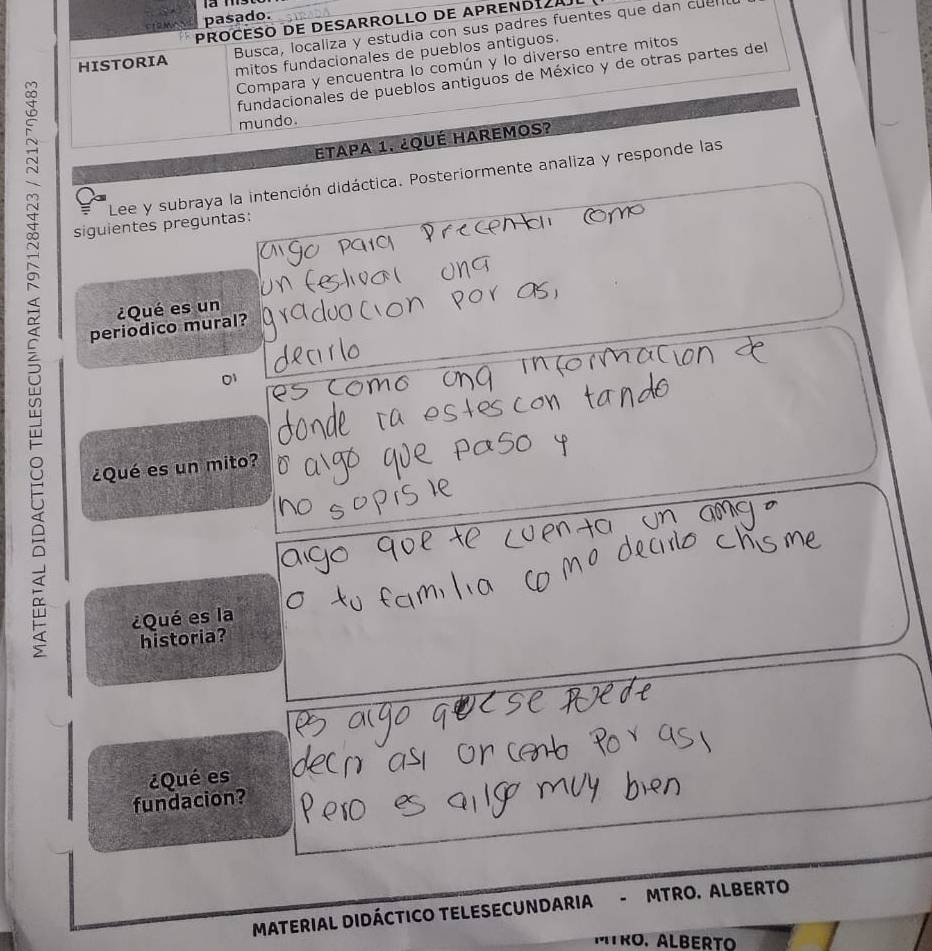 pasado.
PROCESO DE DESARROLLO DE APRENDIZAJE
HISTORIA
Busca, localiza y estudia con sus padres fuentes que dan cuenta
mitos fundacionales de pueblos antiguos.
Compara y encuentra lo común y lo diverso entre mitos
fundacionales de pueblos antiguos de México y de otras partes del
mundo.
ETAPA 1. ¿QUÉ HAREMOS?
Lee y subraya la intención didáctica. Posteriormente analiza y responde las
siguientes preguntas:
¿Qué es un
periodico mural?
algo para precentar como
un festival una
graduacion por asi
decirlo
¿Qué es un mito?
es como una informacion de
donde ta estes con tando
o algo que paso y
no sopiste
¿Qué es la
historia?
algo que te cuenta un amigo
o tu familia como decirlo chisme
¿Qué es
fundacion?
es algo que se puede
decir asi un cento por asi
Pero es ailgo muy bien
MATERIAL DIDACTICO TELESECUNDARIA 7971284423 / 2212706483
MATERIAL DIDÁCTICO TELESECUNDARIA - MTRO. ALBERTO
MTRO. ALBERTO